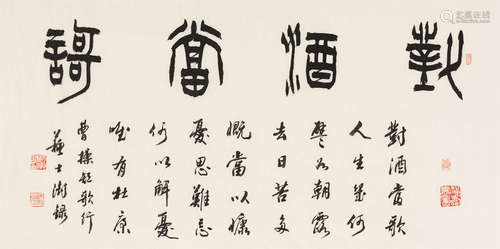 對酒當謌
對酒當歌
人生幾何
譬如朝露
去日苦多
慨當以慷
憂思難忘
何以解憂
唯有杜康
曹操短歌行
蘇士澍錄